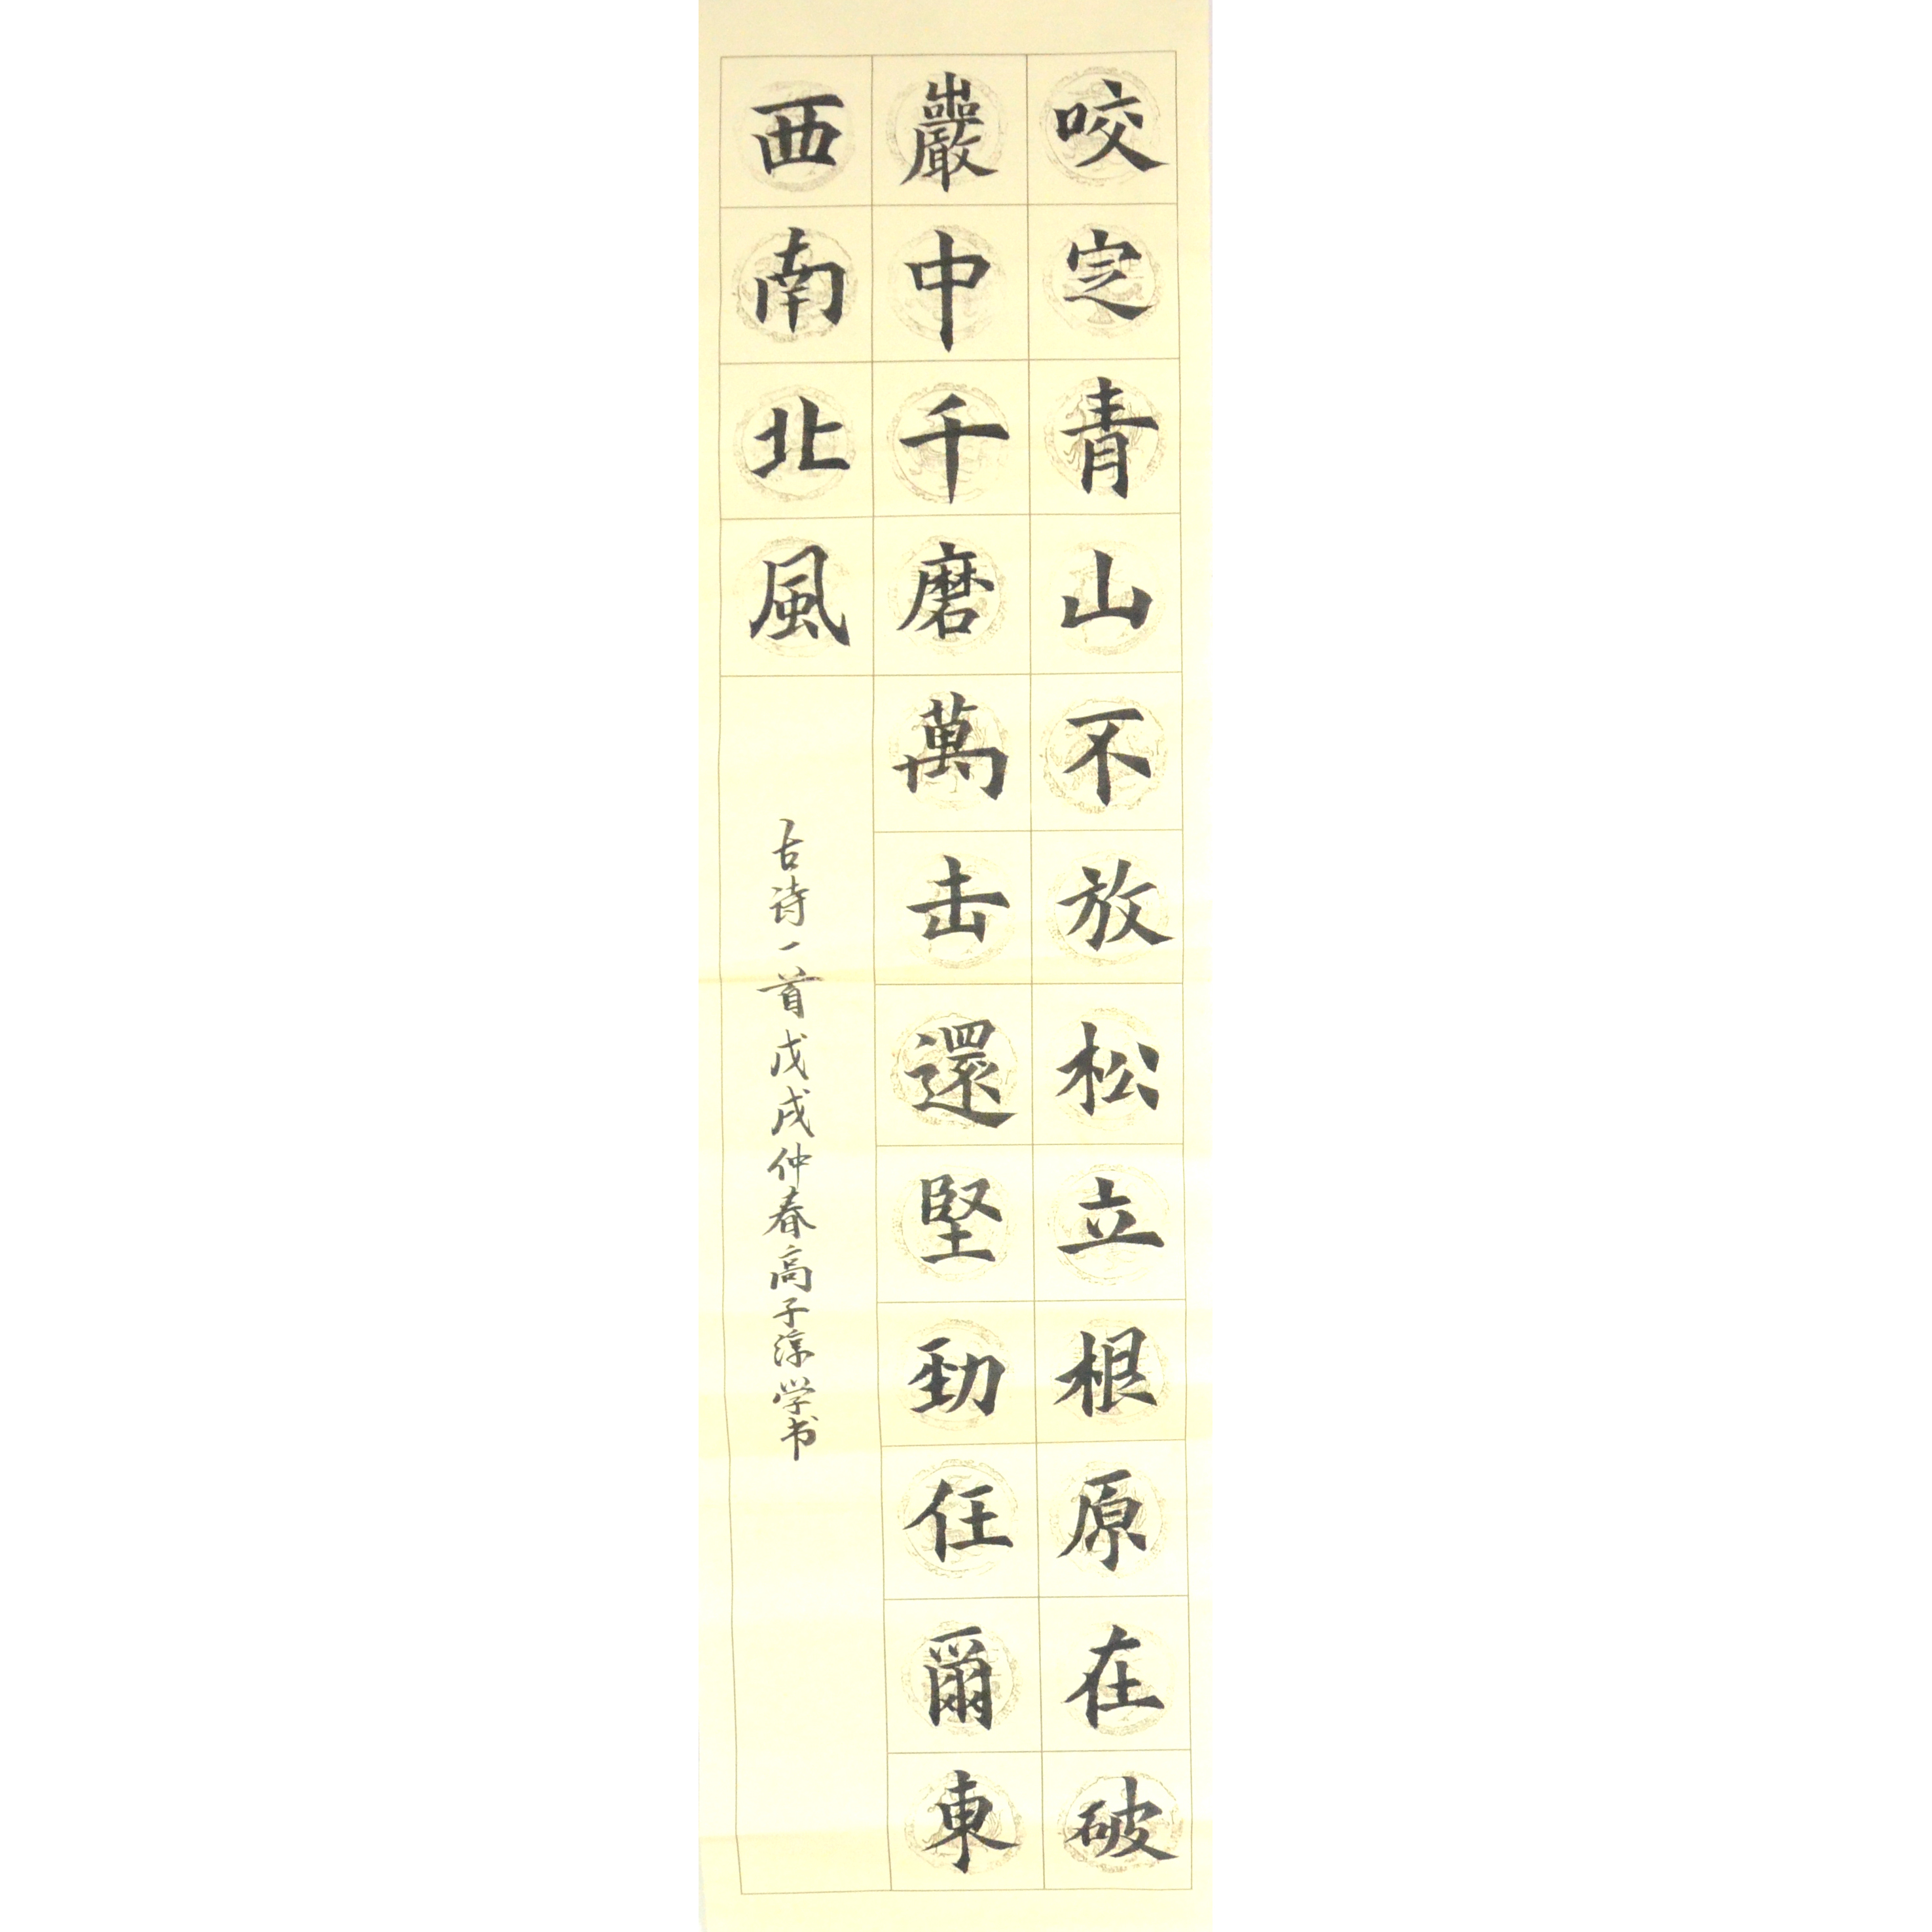 咬定青山不放松立根原在破
巖中千磨萬击還堅勁任爾東
西南北風
古诗一首戊戌仲春高子淳学书